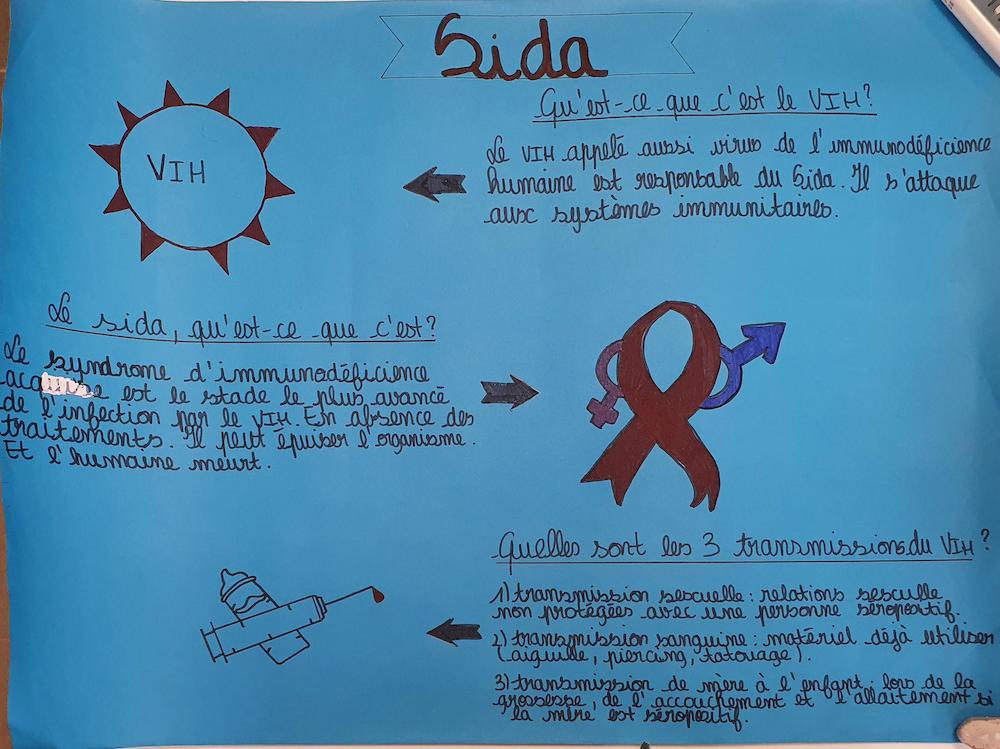 Sida
Qu'est-ce que c'est le VIH?
Le VIH appelé aussi virus de l'immunodéficience
humaine est responsable du Sida. Il s'attaque
aux systèmes immunitaires.
VIH
Le sida, qu'est-ce que c'est?
Le syndrome d'immunodéficience
acquise est le stade le plus avancé
de l'infection par le VIH. En absence des
traitements. Il peut épuiser l'organisme.
Et l'humaine meurt.
Quelles sont les 3 transmissions du VIH?
1) transmission sexuelle : relations sexuelle
non protégées avec une personne séropositif.
2) transmission sanguine : matériel déjà utiliser
(aiguille, piercing, tatouage).
3) transmission de mère à l'enfant : lors de la
grossesse, de l'accouchement et l'allaitement si
la mère est séropositif.